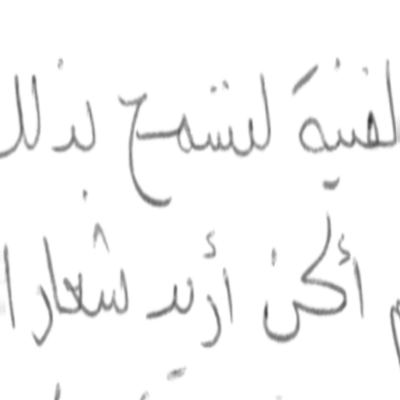 لفنية لتسمح بذلك
أكن أريد شعارا